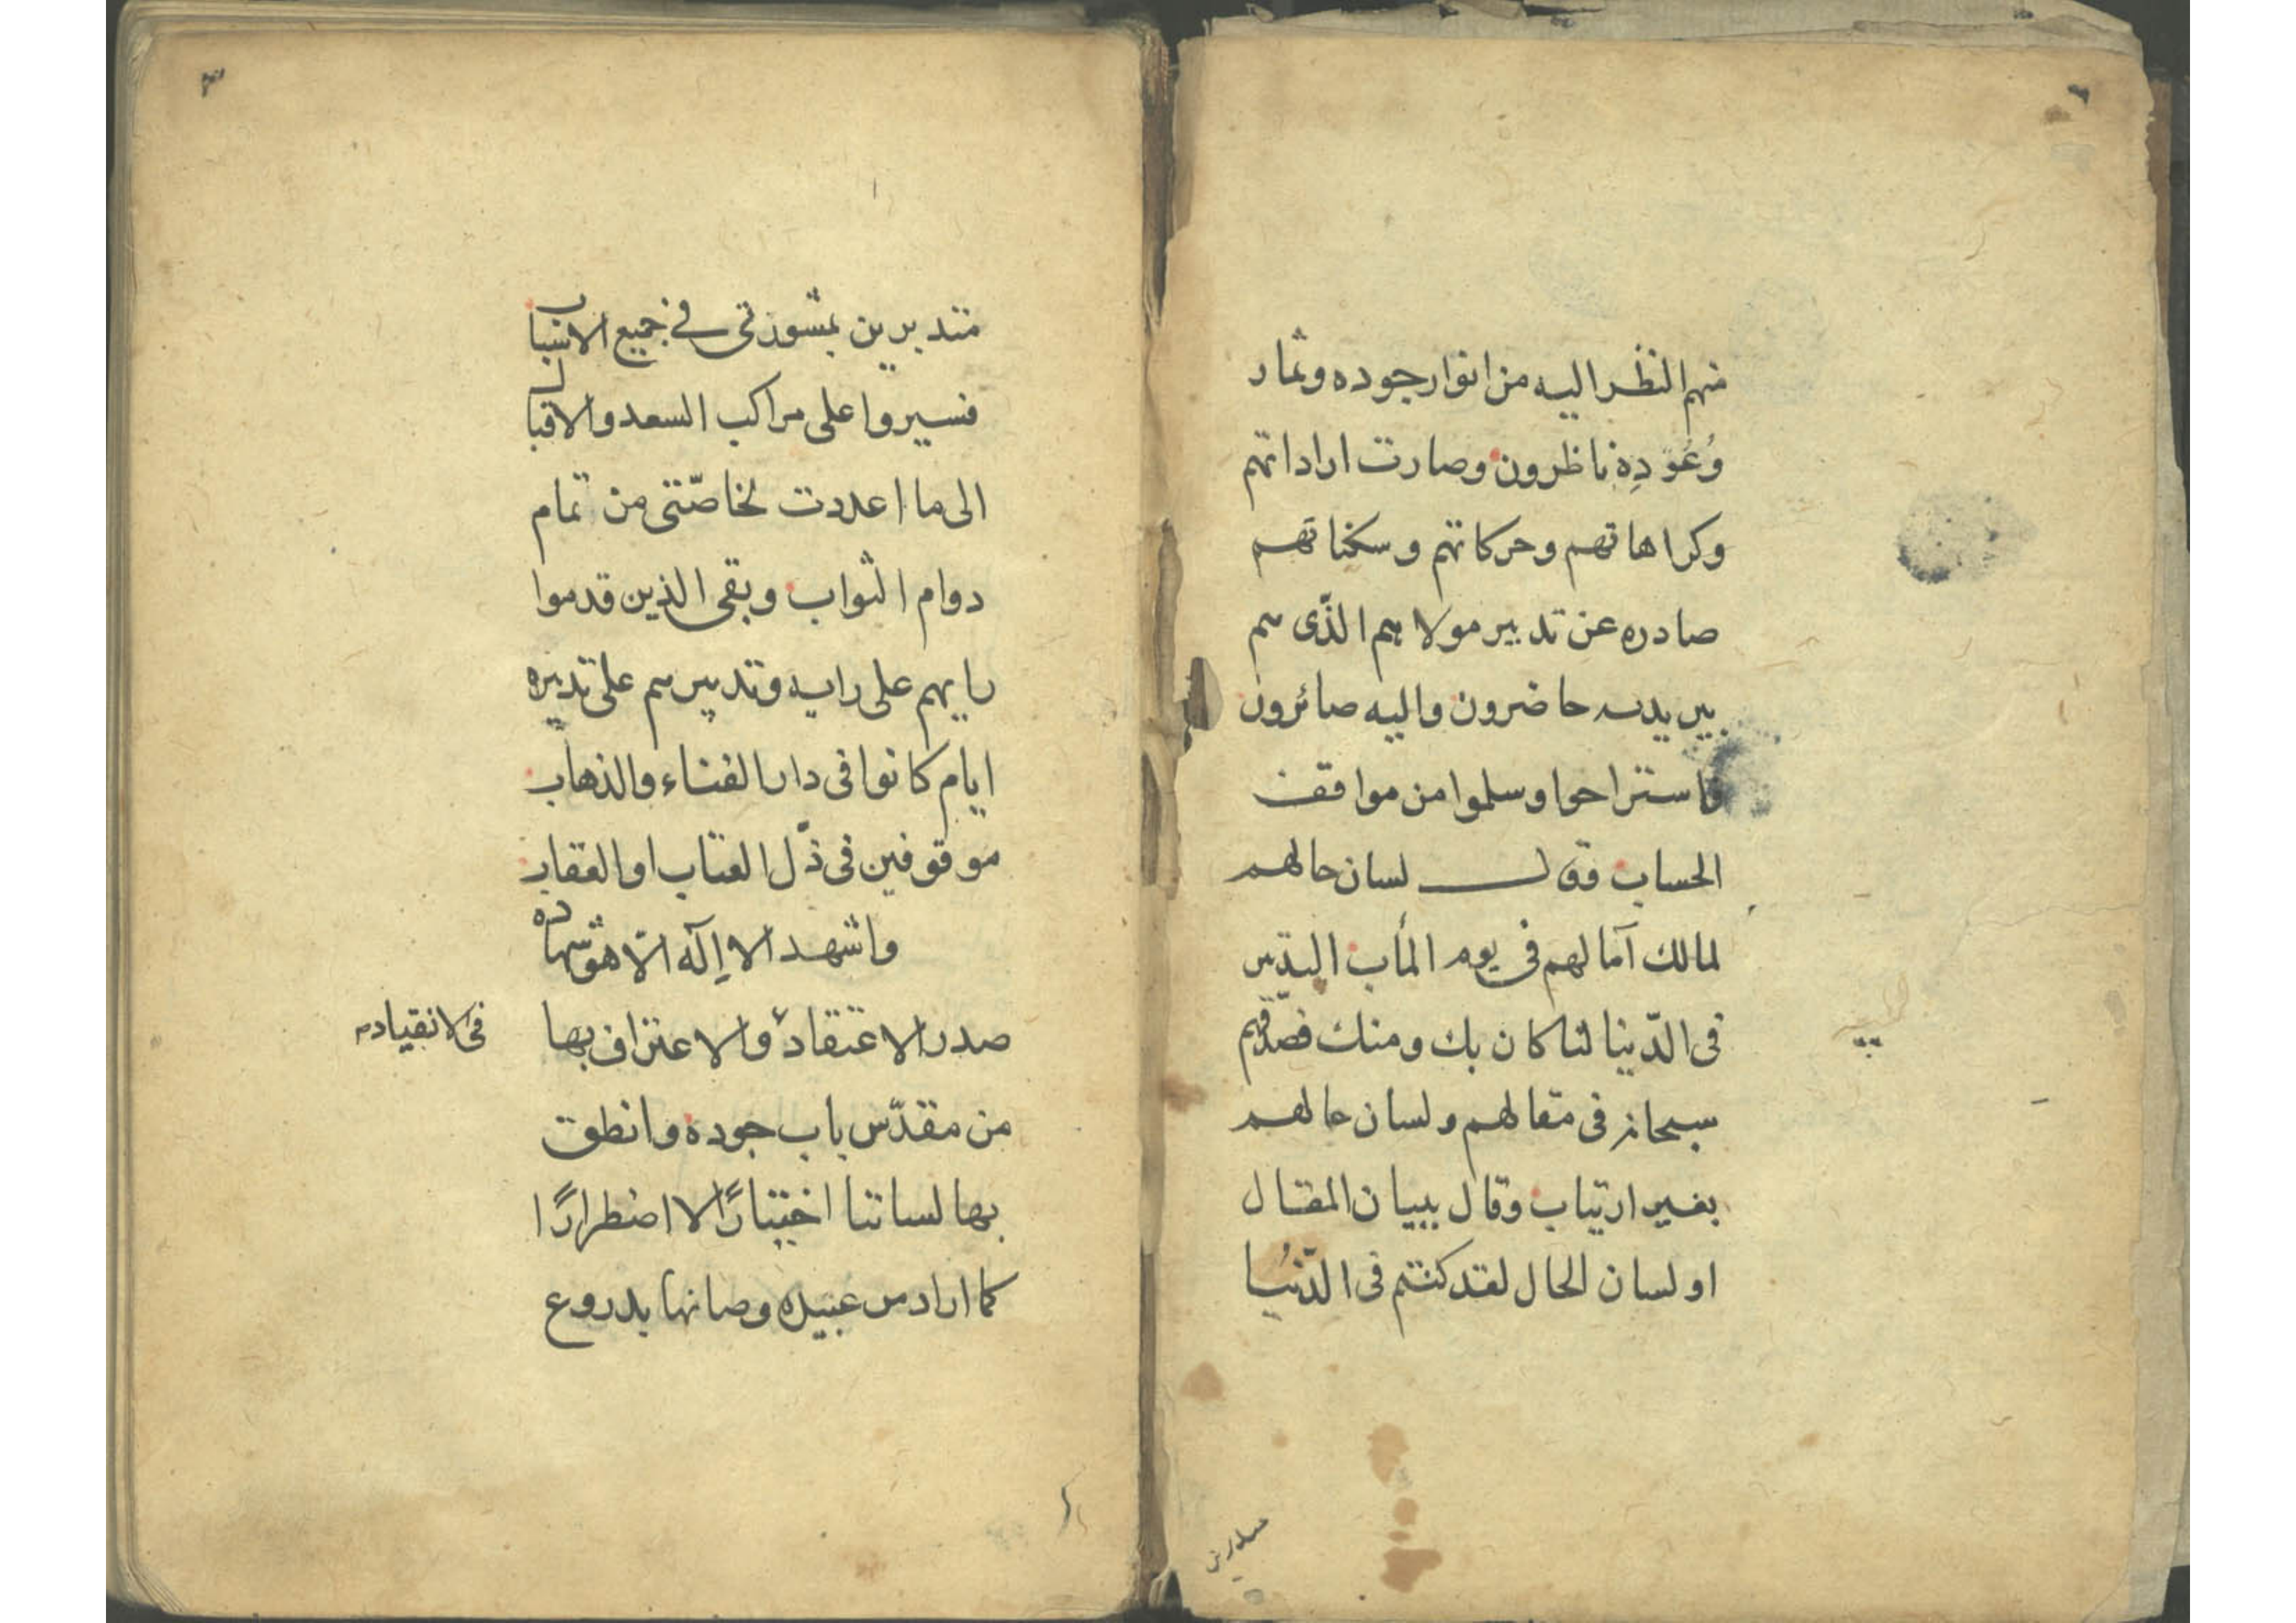 منهم النظر اليه من انوار جوده وثمار
وُعُودِهِ ناظرون وصارت اراداتهم
وكراهاتهم وحركاتهم وسكناتهم
صادره عن تدبير مولاهم الذّى هم
بين يديه حاضرون واليه صائرون
فاستراحوا وسلموا من مواقف
الحساب فقال لسان حالهم
لمالك آمالهم فى يوم المأب التدبير
فى الدّنيا لنا كان بك ومنك فصدّقهم
سبحانه فى مقالهم ولسان حالهم
بغير ارتياب وقال ببيان المقال
او لسان الحال لقد كنتم فى الدّنيُا
متدبرين بمشورتى فى جميع الاسباب
فسيروا على مراكب السعد والاقبال
الى ما اعددت لخاصّتى من تمام
دوام الثواب وبقى الذين قدموا
رايهم على رايه وتدبيرهم على تدبيره
ايام كانوا فى دار الفناء والذهاب
موقوفين فى ذّل العتاب او العقاب
واشهد الا إله الّا هو شهادة
صدر الاعتقاد والاعتراف بها
فى الانقياد
من مقدّس باب جوده وانطق
بها لساننا اختيارًا لا اضطرارًا
كما اراد من عبيده وصانها بدروع